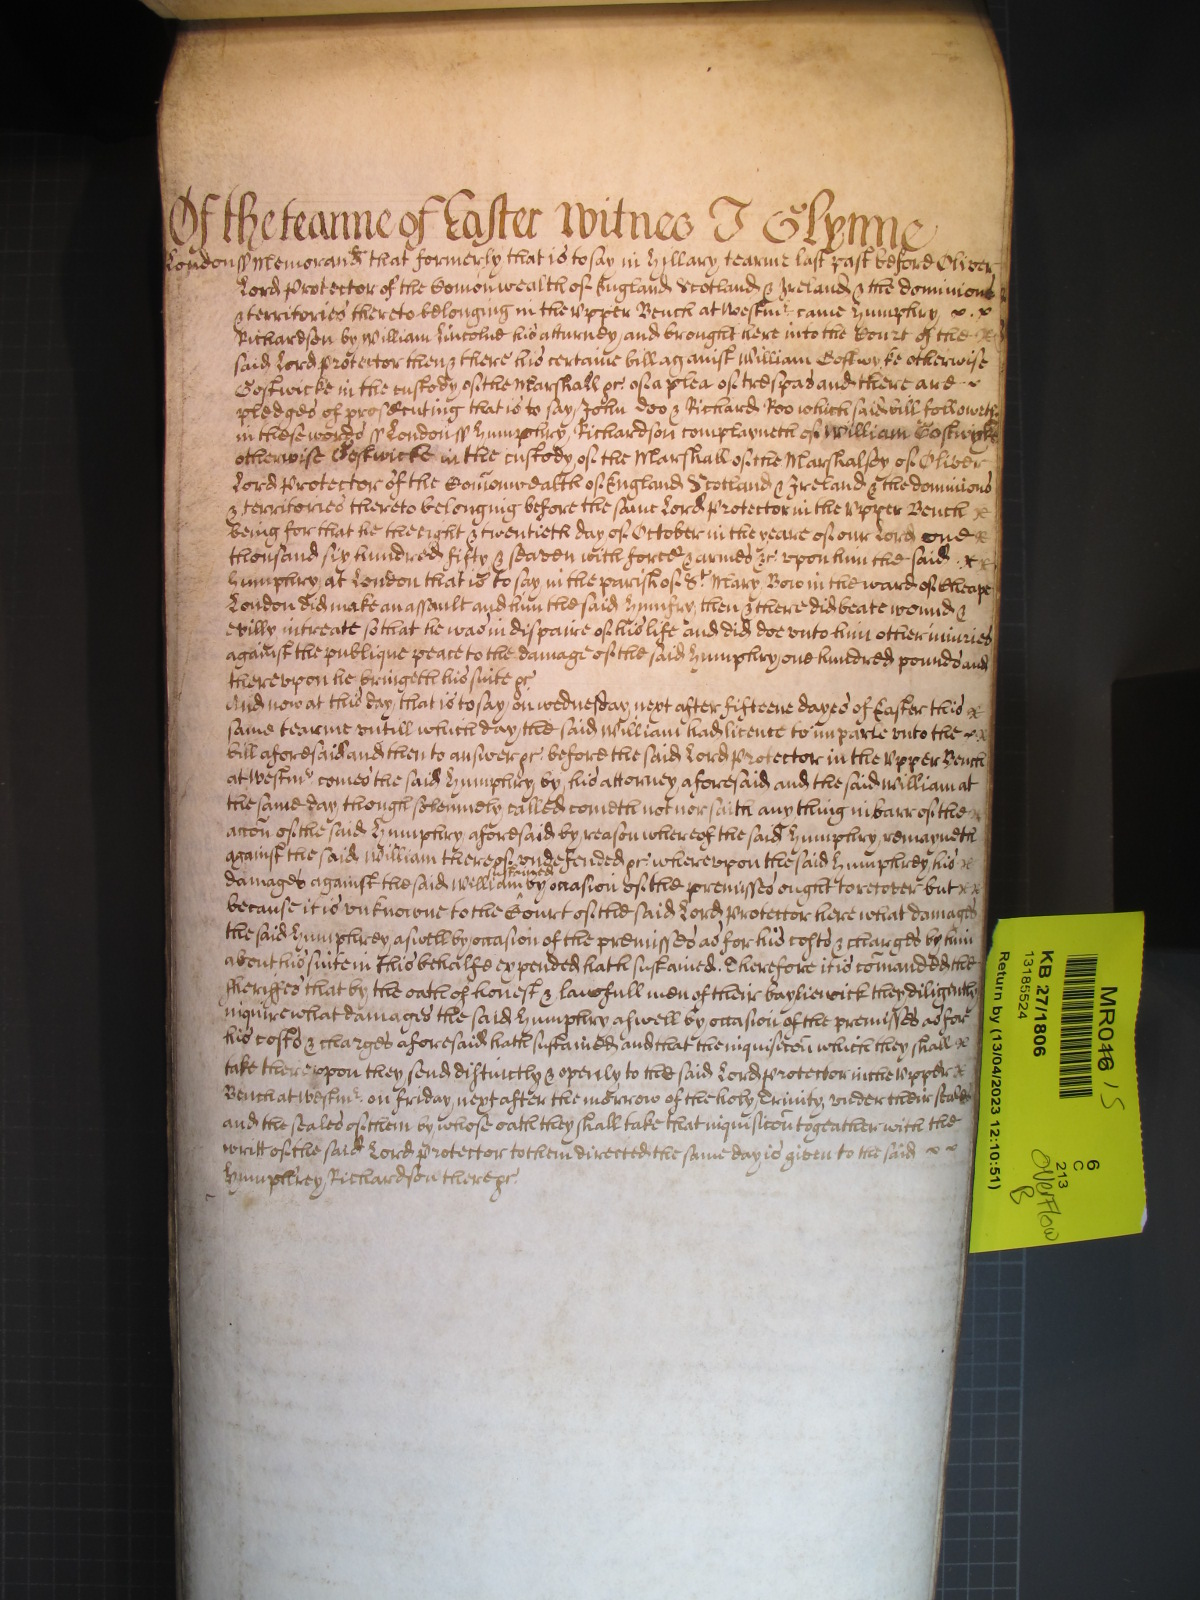 Of the tearme of Easter Witnes J Glynne
London ss Memorand that formerly that is to say in Hillary tearme last past before Oliver
Lord Protector of the Comonwealth of England Scotland & Ireland & the dominions
& territories thereto belonging in the Upper Bench at Westmr came Humphry
Richardson by William Lincolne his atturney and brought here into the Court of the
said Lord Protector then & there his certaine bill against William Gostwyke otherwise
Gostwicke in the custody of the Marshall &c of a plea of trespas and there are
pledges of prosecuting that is to say John Doo & Richard Roo which said bill followeth
in these words ss London ss Humphry Richardson complayneth of William Gostwyke
otherwise Gostwicke in the custody of the Marshall of the Marshalsey of Oliver
Lord Protector of the Comonwealth of England Scotland & Ireland & the dominions
& territories thereto belonging before the same Lord Protector in the Upper Bench
being for that he the eight & twentieth day of October in the yeare of our Lord one
thousand six hundred fifty & seaven with force & armes &c upon him the said
Humphry at London that is to say in the parish of St Mary Bow in the ward of Cheape
London did make an assault and him the said Humfry then & there did beate wound &
evilly intreate so that he was in dispaire of his life and did doe unto him other injuries
against the publique peace to the damage of the said Humphry one hundred pounds and
thereupon he bringeth his suite &c
And now at this day that is to say on wednesday next after fifteene dayes of Easter this
same tearme untill which day the said William had licence to imparle unto the
bill aforesaid and then to answer &c before the said Lord Protector in the Upper Bench
at Westmr comes the said Humphry by his attorney aforesaid and the said William at
the same day though solemnely called cometh not nor saith any thing in barr of the
accon of the said Humphry aforesaid by reason whereof the said Humphry remayneth
against the said William thereof undefended &c whereupon the said Humphrey his
damages against the said William sustained by occasion of the premisses ought to recover but
because it is unknowne to the Court of the said Lord Protector here what damages
the said Humphrey aswell by occasion of the premisses as for his costs & charges by him
about his suite in this behalfe expended hath sustained Therefore it is comanded the
sheriffes that by the oath of honest & lawfull men of their bayliewick they diligently
inquire what damages the said Humphry aswell by occasion of the premisses as for
his costs & charges aforesaid hath sustained and that the inquisicon which they shall
take thereupon they send distinctly & openly to the said Lord Protector in the Upper
Bench at Westmr on Friday next after the morrow of the holy Trinity under their seales
and the seales of them by whose oath they shall take that inquisicon togeather with the
writt of the said Lord Protector to them directed the same day is given to the said
Humphrey Richardson there &c
MR016 / S
KB 27/1806
13185524
Return by (13/04/2023 12:10:51)
6
C
213
Overflow
B